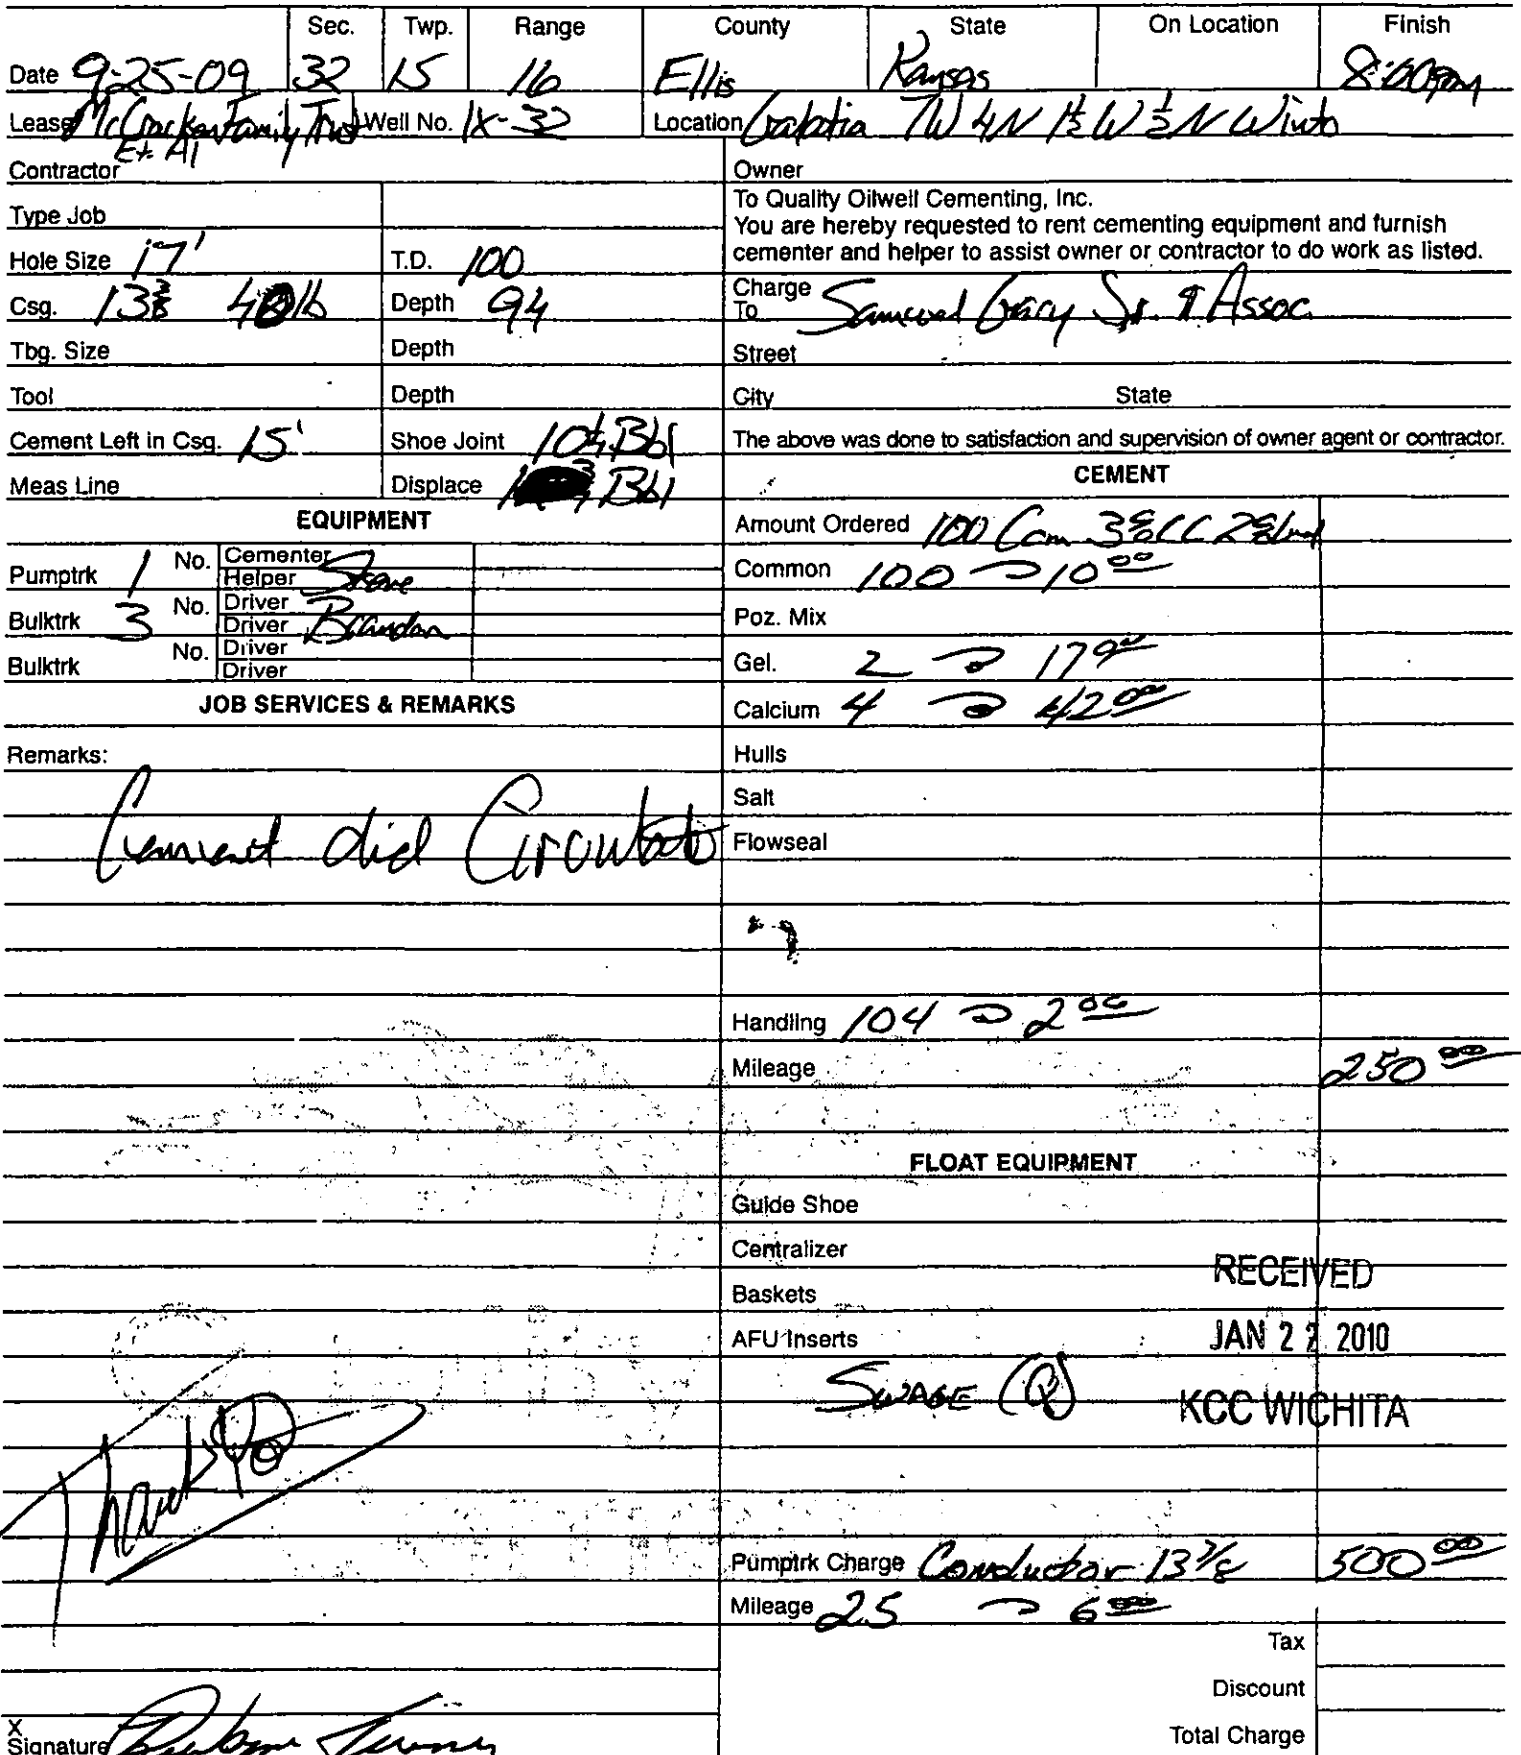 Sec. Twp. Range County State On Location Finish
Date 9-25-09 32 15 16 Ellis Kansas 8:00pm
Lease McCracken Family Trust Well No. 1X-32 Location Galatia 7W 4N 1½W ½N Winto
Et. Al
Contractor Owner
Type Job To Quality Oilwell Cementing, Inc.
You are hereby requested to rent cementing equipment and furnish
cementer and helper to assist owner or contractor to do work as listed.
Hole Size 17' T.D. 100
Csg. 13 3/8 lb Depth 94 Charge To Samuel Gary Jr. & Assoc.
Tbg. Size Depth Street
Tool Depth City State
Cement Left in Csg. 15' Shoe Joint Bbl The above was done to satisfaction and supervision of owner agent or contractor.
Meas Line Displace Bbl CEMENT
EQUIPMENT Amount Ordered 100 Com 3% CC 2% Gel
Pumptrk 1 No. Cementer Helper Steve Common 100 @ 10 00
Bulktrk 3 No. Driver Driver Brandon Poz. Mix
Bulktrk No. Driver Driver Gel. 2 @ 17 00
JOB SERVICES & REMARKS Calcium 4 @ 42 00
Remarks: Hulls
Salt
Cement did Circulate Flowseal
Handling 104 @ 2 00
Mileage 250 00
FLOAT EQUIPMENT
Guide Shoe
Centralizer
RECEIVED
Baskets
AFU Inserts JAN 22 2010
SWAGE
KCC WICHITA
Thank
Pumptrk Charge Conductor 13 3/8 500 00
Mileage 25 @ 6 00
Tax
Discount
X
Signature Total Charge